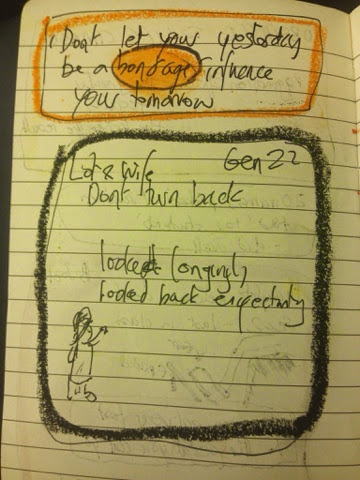 Don't let your yesterday
be a bondage influence
your tomorrow
Lot & wife Gen 22
Don't turn back
looked longingly
looked back expectantly